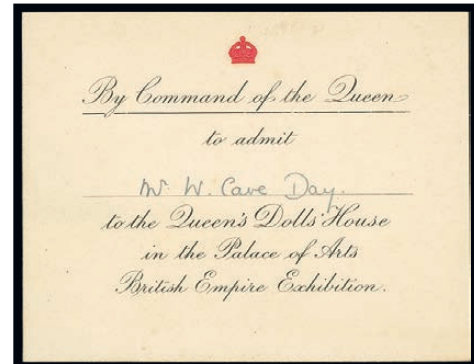 By Command of the Queen
to admit
Mr W. Cave Day.
to the Queen's Dolls' House
in the Palace of Arts
British Empire Exhibition.